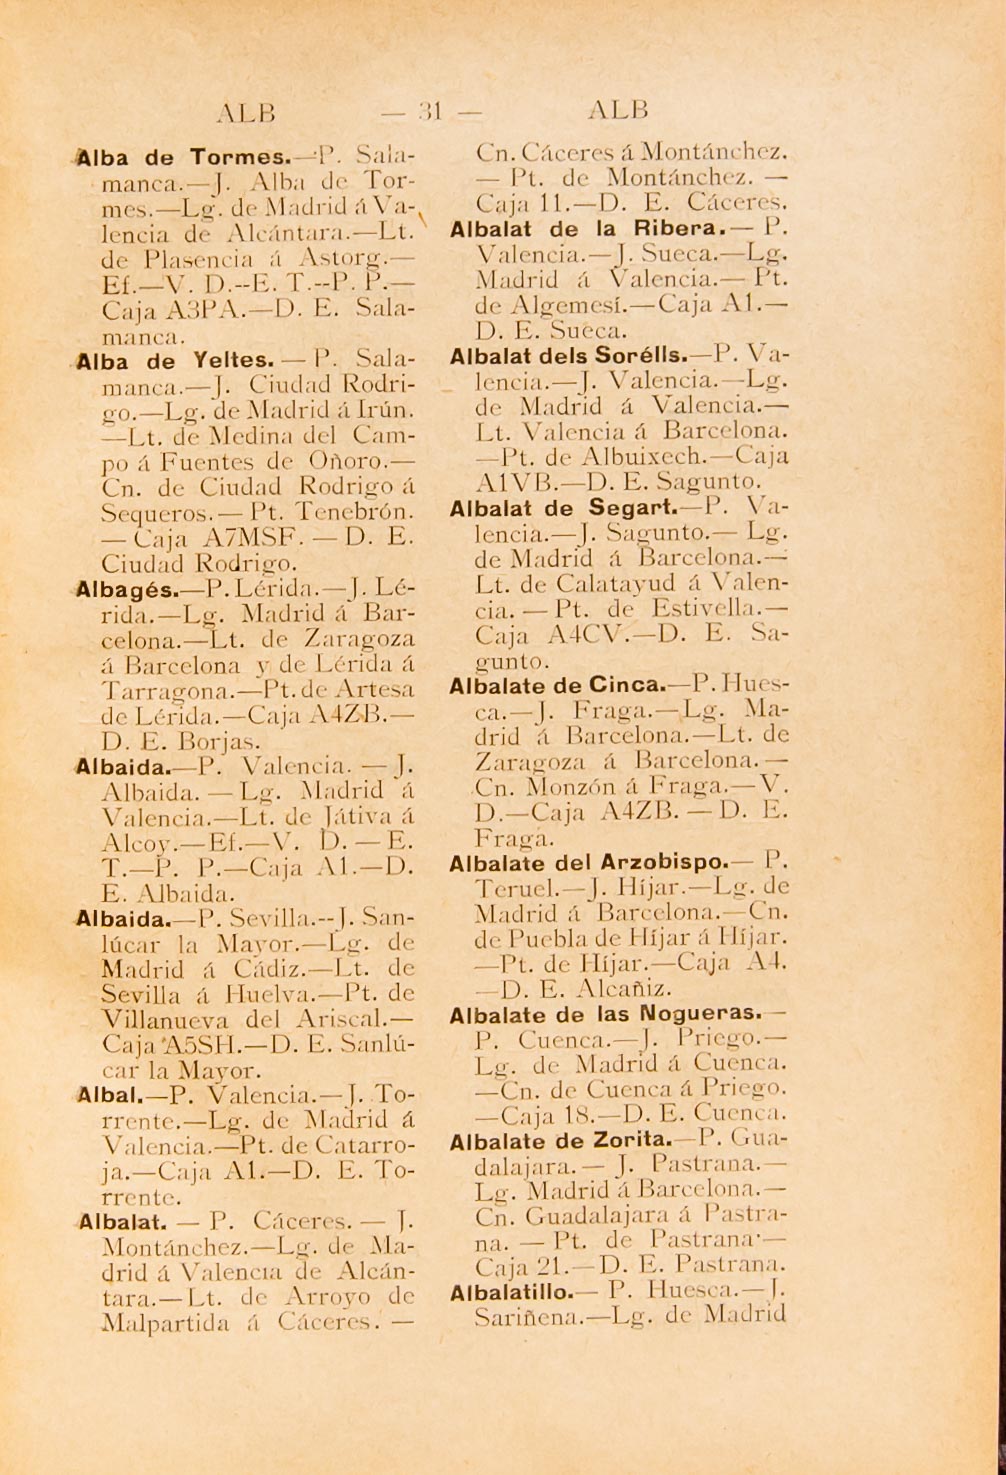 ALB — 31 — ALB
Alba de Tormes.—P. Sala-
manca.—J. Alba de Tor-
mes.—Lg. de Madrid á Va-
lencia de Alcántara.—Lt.
de Plasencia á Astorg.—
Ef.—V. D.--E. T.--P. P.—
Caja A3PA.—D. E. Sala-
manca.
Alba de Yeltes. — P. Sala-
manca.—J. Ciudad Rodri-
go.—Lg. de Madrid á Irún.
—Lt. de Medina del Cam-
po á Fuentes de Oñoro.—
Cn. de Ciudad Rodrigo á
Sequeros. — Pt. Tenebrón.
— Caja A7MSF. — D. E.
Ciudad Rodrigo.
Albagés.—P. Lérida.—J. Lé-
rida.—Lg. Madrid á Bar-
celona.—Lt. de Zaragoza
á Barcelona y de Lérida á
Tarragona.—Pt. de Artesa
de Lérida.—Caja A4ZB.—
D. E. Borjas.
Albaida.—P. Valencia. — J.
Albaida. — Lg. Madrid á
Valencia.—Lt. de Játiva á
Alcoy.—Ef.—V. D. — E.
T.—P. P.—Caja A1.—D.
E. Albaida.
Albaida.—P. Sevilla.--J. San-
lúcar la Mayor.—Lg. de
Madrid á Cádiz.—Lt. de
Sevilla á Huelva.—Pt. de
Villanueva del Ariscal.—
Caja A5SH.—D. E. Sanlú-
car la Mayor.
Albal.—P. Valencia.—J. To-
rrente.—Lg. de Madrid á
Valencia.—Pt. de Catarro-
ja.—Caja A1.—D. E. To-
rrente.
Albalat. — P. Cáceres. — J.
Montánchez.—Lg. de Ma-
drid á Valencia de Alcán-
tara.—Lt. de Arroyo de
Malpartida á Cáceres. —
Cn. Cáceres á Montánchez.
— Pt. de Montánchez. —
Caja 11.—D. E. Cáceres.
Albalat de la Ribera.— P.
Valencia.—J. Sueca.—Lg.
Madrid á Valencia.— Pt.
de Algemesí.—Caja A1.—
D. E. Sueca.
Albalat dels Sorélls.—P. Va-
lencia.—J. Valencia.—Lg.
de Madrid á Valencia.—
Lt. Valencia á Barcelona.
—Pt. de Albuixech.—Caja
A1VB.—D. E. Sagunto.
Albalat de Segart.—P. Va-
lencia.—J. Sagunto.— Lg.
de Madrid á Barcelona.—
Lt. de Calatayud á Valen-
cia. — Pt. de Estivella.—
Caja A4CV.—D. E. Sa-
gunto.
Albalate de Cinca.—P. Hues-
ca.—J. Fraga.—Lg. Ma-
drid á Barcelona.—Lt. de
Zaragoza á Barcelona.—
Cn. Monzón á Fraga.—V.
D.—Caja A4ZB. — D. E.
Fraga.
Albalate del Arzobispo.— P.
Teruel.—J. Híjar.—Lg. de
Madrid á Barcelona.—Cn.
de Puebla de Híjar á Híjar.
—Pt. de Híjar.—Caja A4.
—D. E. Alcañiz.
Albalate de las Nogueras.—
P. Cuenca.—J. Priego.—
Lg. de Madrid á Cuenca.
—Cn. de Cuenca á Priego.
—Caja 18.—D. E. Cuenca.
Albalate de Zorita.—P. Gua-
dalajara. — J. Pastrana.—
Lg. Madrid á Barcelona.—
Cn. Guadalajara á Pastra-
na. — Pt. de Pastrana·—
Caja 21.—D. E. Pastrana.
Albalatillo.— P. Huesca.—J.
Sariñena.—Lg. de Madrid